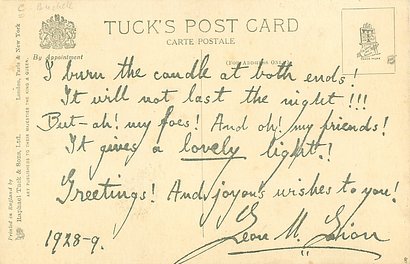 TUCK'S POST CARD
CARTE POSTALE
By Appointment
(FOR ADDRESS ONLY)
I burn the candle at both ends!
It will not last the night!!!
But ah! my foes! And oh! my friends!
It gives a lovely light!!
Greetings! And joyous wishes to you!
Leon M. Lion
1928-9.
Printed in England by
Raphael Tuck & Sons, Ltd. London, Paris & New York
ART PUBLISHERS TO THEIR MAJESTIES THE KING & QUEEN